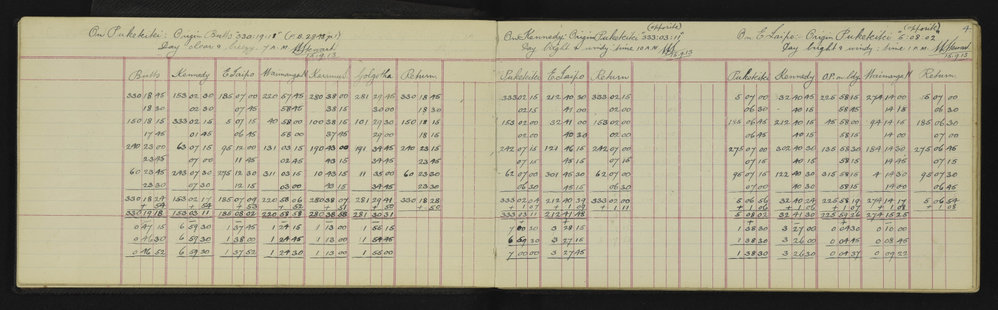 On Puketiti: Origin Butts "330:19:18"
Day clear & breezy 7 A.M.
15.9.13
Butts Kennedy E Taipo Kereru Golgotha Return
330 18 45 153 02 30 185 07 00 220 57 45 280 38 00 281 29 45 330 18 45
18 30 02 30 07 45 58 45 38 15 30 00 18 30
150 18 15 333 02 15 5 07 15 40 58 00 100 38 15 101 29 30 150 18 15
17 45 01 45 06 45 58 00 37 45 29 00 18 15
240 23 00 63 07 15 95 12 00 131 03 15 190 43 00 191 34 45 240 23 15
23 45 07 00 11 45 02 45 43 15 34 45 23 45
60 23 45 243 07 30 275 12 30 311 03 15 10 43 15 11 35 00 60 23 30
23 30 07 30 12 15 03 00 43 15 34 45 23 30
330 18 24 153 02 17 185 07 09 220 58 06 280 38 07 281 29 41 330 18 28
330 19 18 153 03 11 185 08 02 220 58 58 280 38 58 281 30 31
0 47 15 6 59 30 1 37 45 1 24 15 1 13 00 1 55 15
0 46 30 6 59 30 1 38 00 1 24 45 1 13 00 1 54 45
0 46 52 6 59 30 1 37 52 1 24 30 1 13 00 1 55 00
(opposite)
On Kennedy Origin Puketiti "333:03:11"
Day bright & windy, time 10 A.M.
15.9.13
Puketiti E Taipo Return
333 02 15 212 40 30 333 02 15
02 15 41 00 02 00
153 02 00 32 41 00 153 02 00
02 00 40 30 02 00
242 07 15 121 46 15 242 07 00
07 15 45 15 07 15
62 07 00 301 45 30 62 07 00
06 30 45 15 06 30
333 02 04 212 40 39 333 02 00
+ 1 07 + 1 09 + 1 11
333 03 11 212 41 48
7 00 30 3 28 15
6 59 30 3 27 15
7 00 00 3 27 45
4
(opposite)
On E Taipo: Origin Puketiti "5:08:02
Day bright & windy: time 1 P.M.
15.9.13
Puketiti Kennedy Return
5 07 00 32 40 45 225 58 15 274 14 00 5 07 00
06 30 40 15 58 45 14 15 06 30
185 06 45 212 40 15 45 58 00 94 14 15 185 06 30
06 45 40 15 58 15 14 00 07 00
275 07 00 302 40 30 135 58 30 184 14 30 275 06 45
07 15 40 15 58 15 14 45 07 15
95 07 15 122 40 30 315 58 15 4 14 30 95 07 30
07 00 40 30 58 30 14 00 06 45
5 06 56 32 40 24 225 58 19 274 14 17 5 06 54
5 08 02 32 41 30 225 59 26 274 15 25
1 38 30 3 27 00 0 04 30 0 10 00
1 38 30 3 26 00 0 04 45 0 08 45
1 38 30 3 26 30 0 04 37 0 09 22